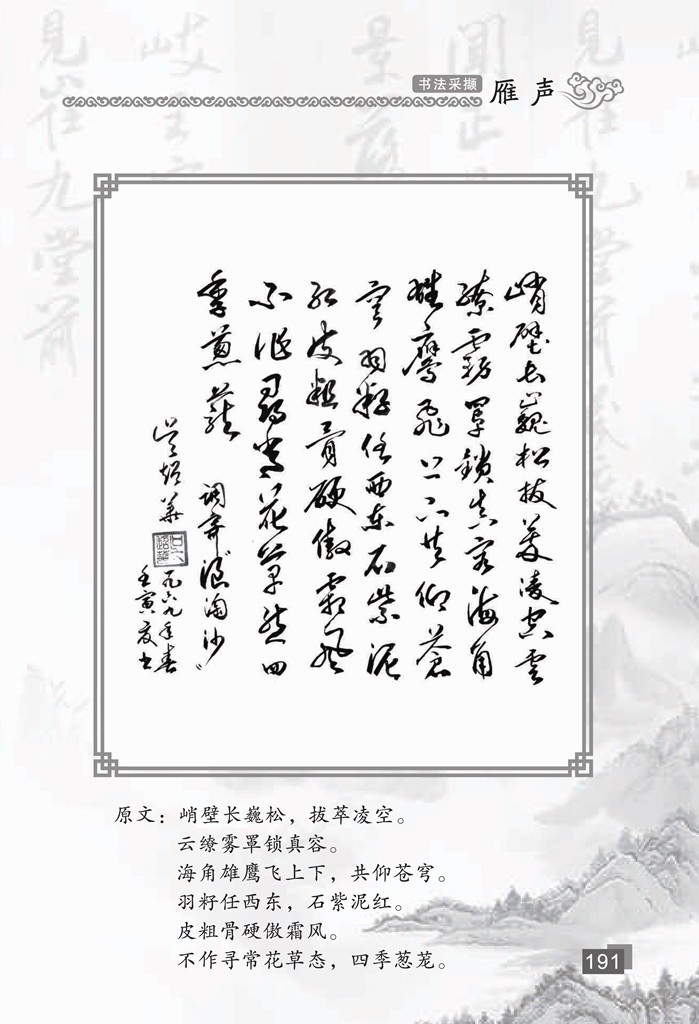 书法采撷
雁声
峭壁长巍松拔萃凌空云
缭雾罩锁真容海角
雄鹰飞上下共仰苍
穹羽籽任西东石紫泥
红皮粗骨硬傲霜风
不作寻常花草态四
季葱茏 调寄“浪淘沙”
一九六九年春
壬寅夏书
原文：峭壁长巍松，拔萃凌空。
云缭雾罩锁真容。
海角雄鹰飞上下，共仰苍穹。
羽籽任西东，石紫泥红。
皮粗骨硬傲霜风。
不作寻常花草态，四季葱茏。
191